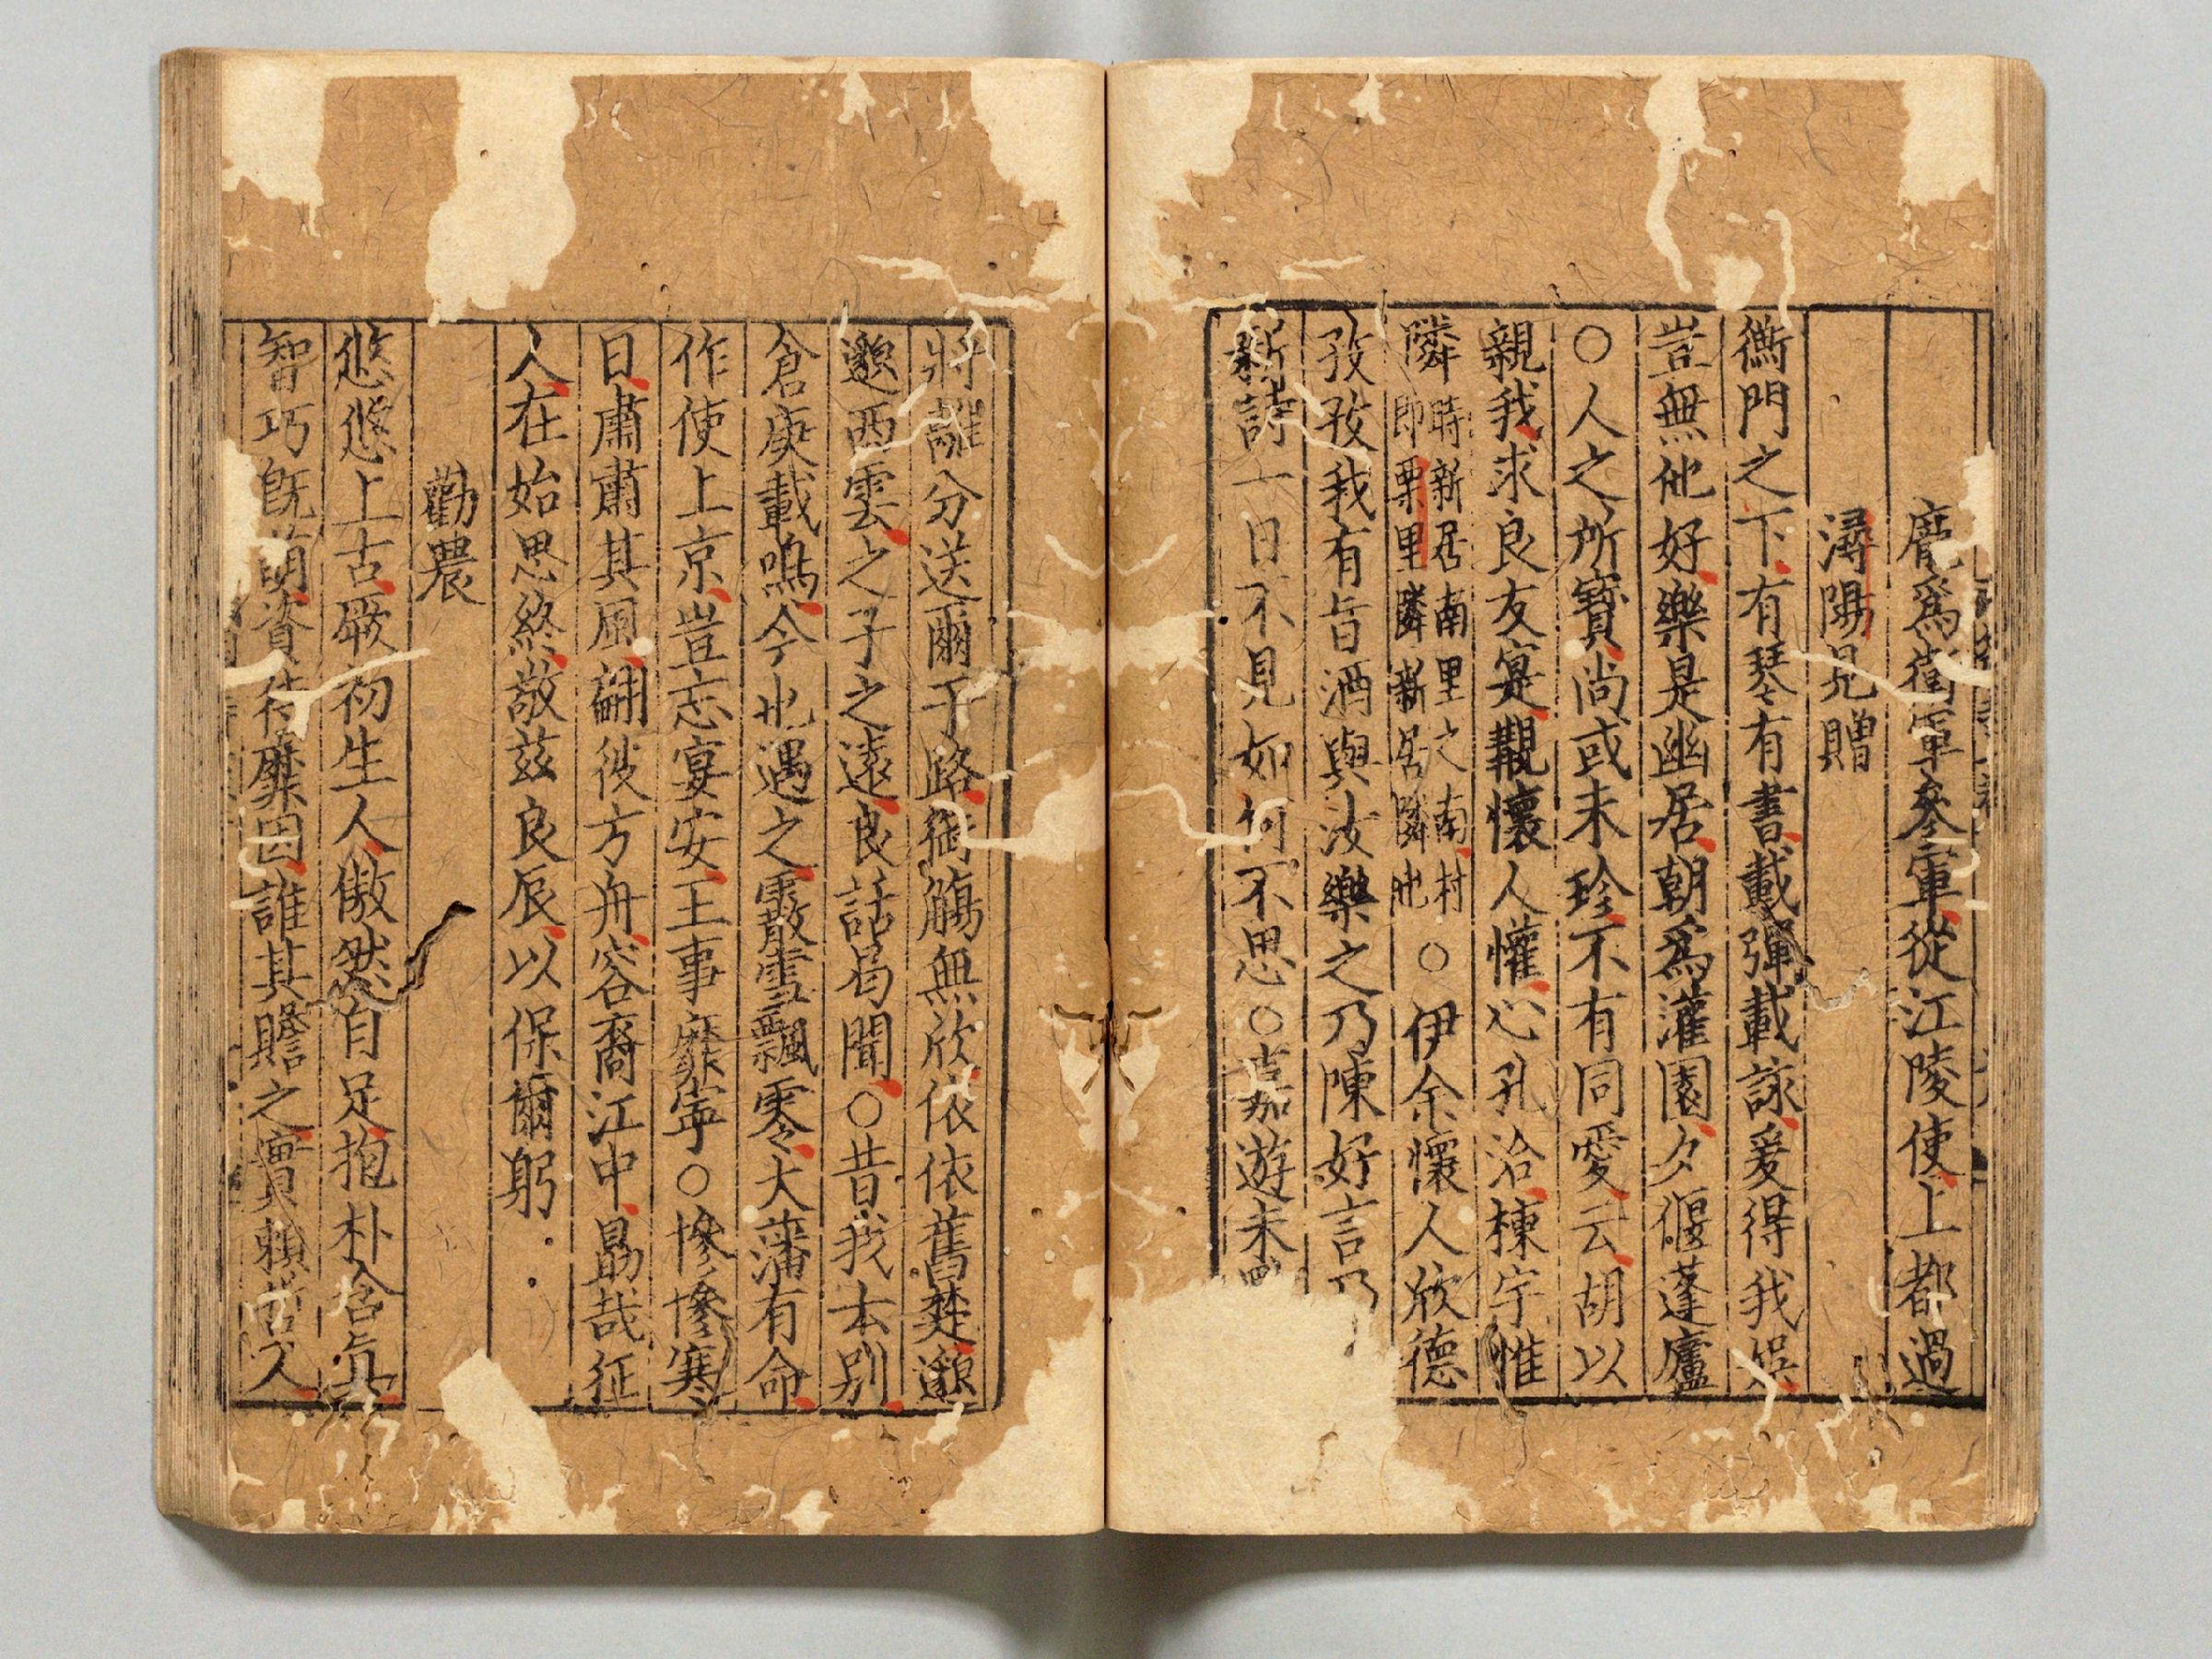 龐爲衛軍參軍從江陵使上都過
潯陽見贈
衡門之下有琴有書載彈載詠爰得我娛
豈無他好樂是幽居朝爲灌園夕偃蓬廬
○人之所寶尚或未珍不有同愛云胡以
親我求良友寔覯懷人懽心孔洽棟宇惟
隣時新居南里之南村即栗里隣新居隣也○伊余懷人欣德
孜孜我有旨酒與汝樂之乃陳好言乃
新詩一日不見如何不思○嘉遊未
將離分送爾于路銜觴無欣依依舊楚邈
邈西雲之子之遠良話曷聞○昔我本别
倉庚載鳴今也遇之霰雪飄零大藩有命
作使上京豈忘宴安王事靡寧○慘慘寒
日肅肅其風翩彼方舟容裔江中勗哉征
人在始思終敬茲良辰以保爾躬
勸農
悠悠上古厥初生人傲然自足抱朴含眞
智巧旣萌資待靡因誰其贍之實賴哲人